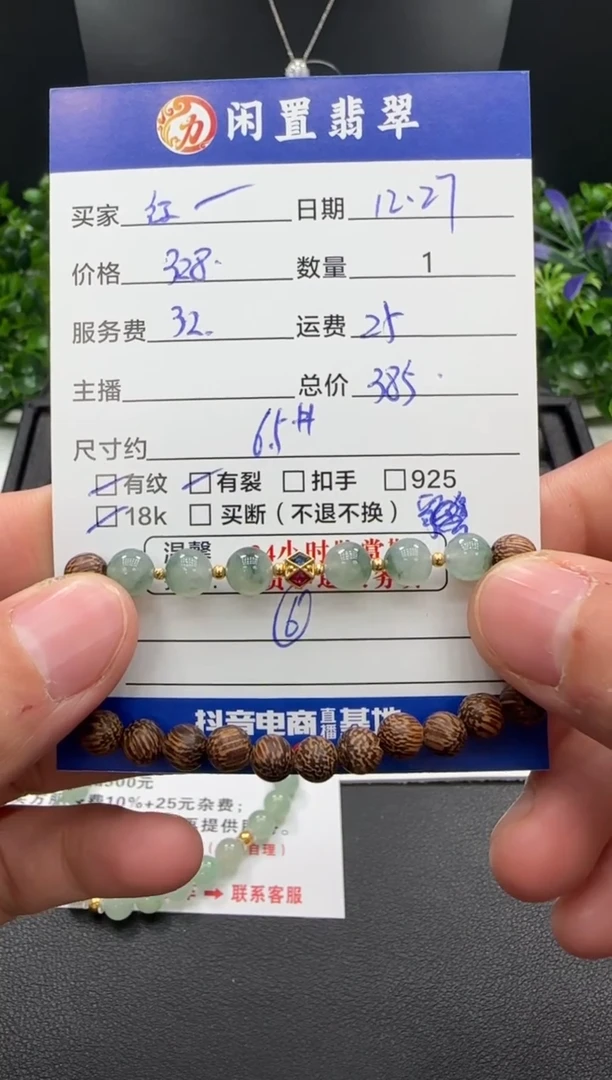 闲置翡翠
买家 红一 日期 12.27
价格 328. 数量 1
服务费 32. 运费 25
主播 总价 385
尺寸约 6.5#
有纹 有裂 扣手 925
18k 买断（不退不换）
温馨 24小时
6
抖音电商直播基地
费10%+25元杂费；
提供
自理）
➡ 联系客服